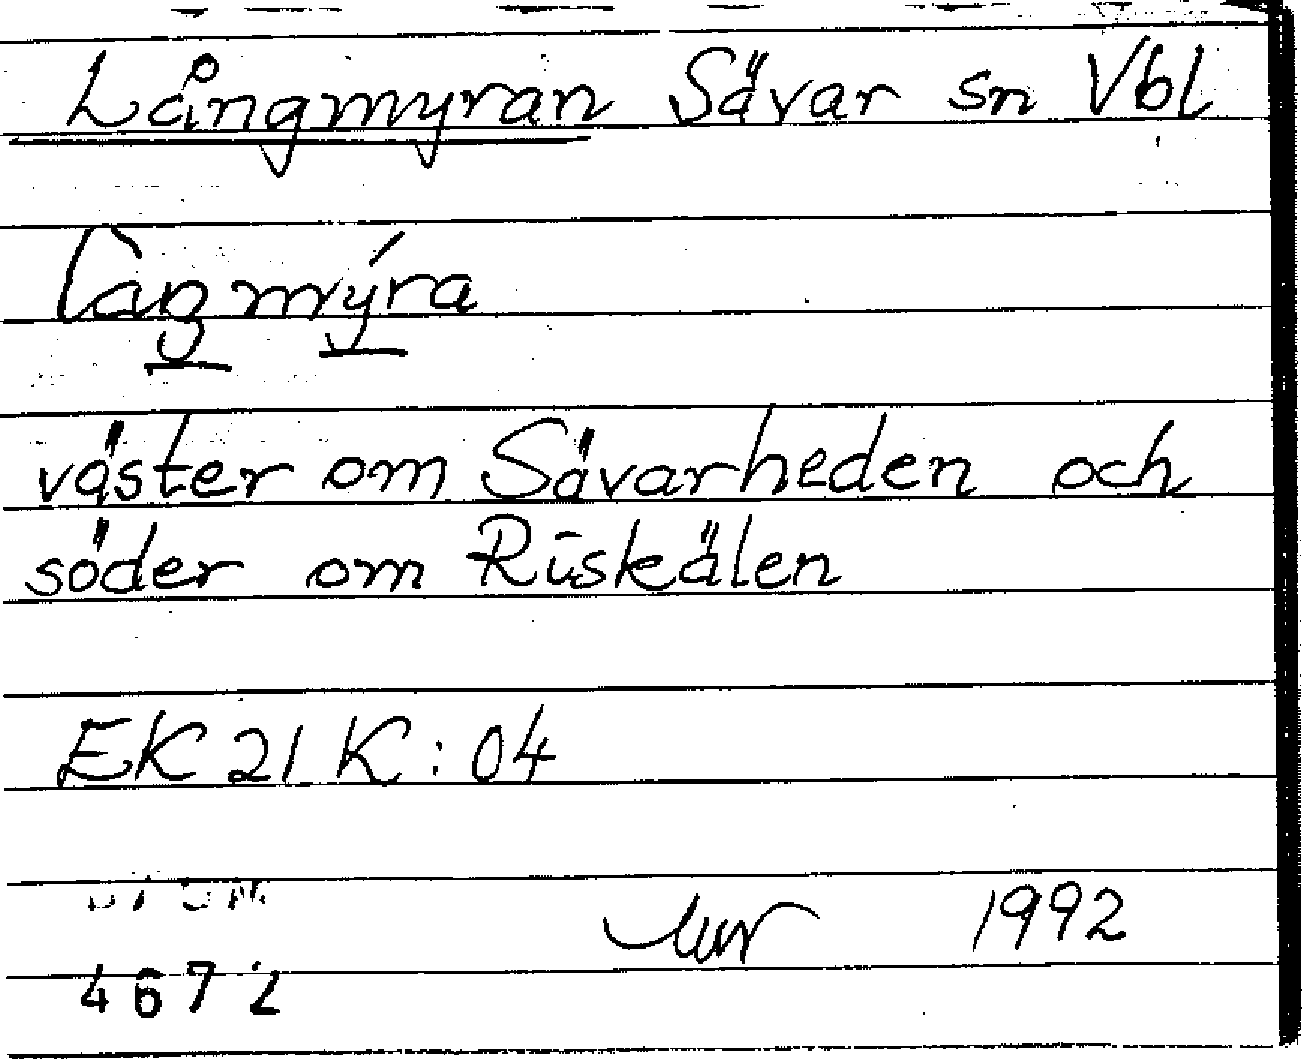 Långmyran Sävar sn Vbl
làŋmýra
väster om Sävarheden och
söder om Riskälen
EK 21 K : 04
1992
4672